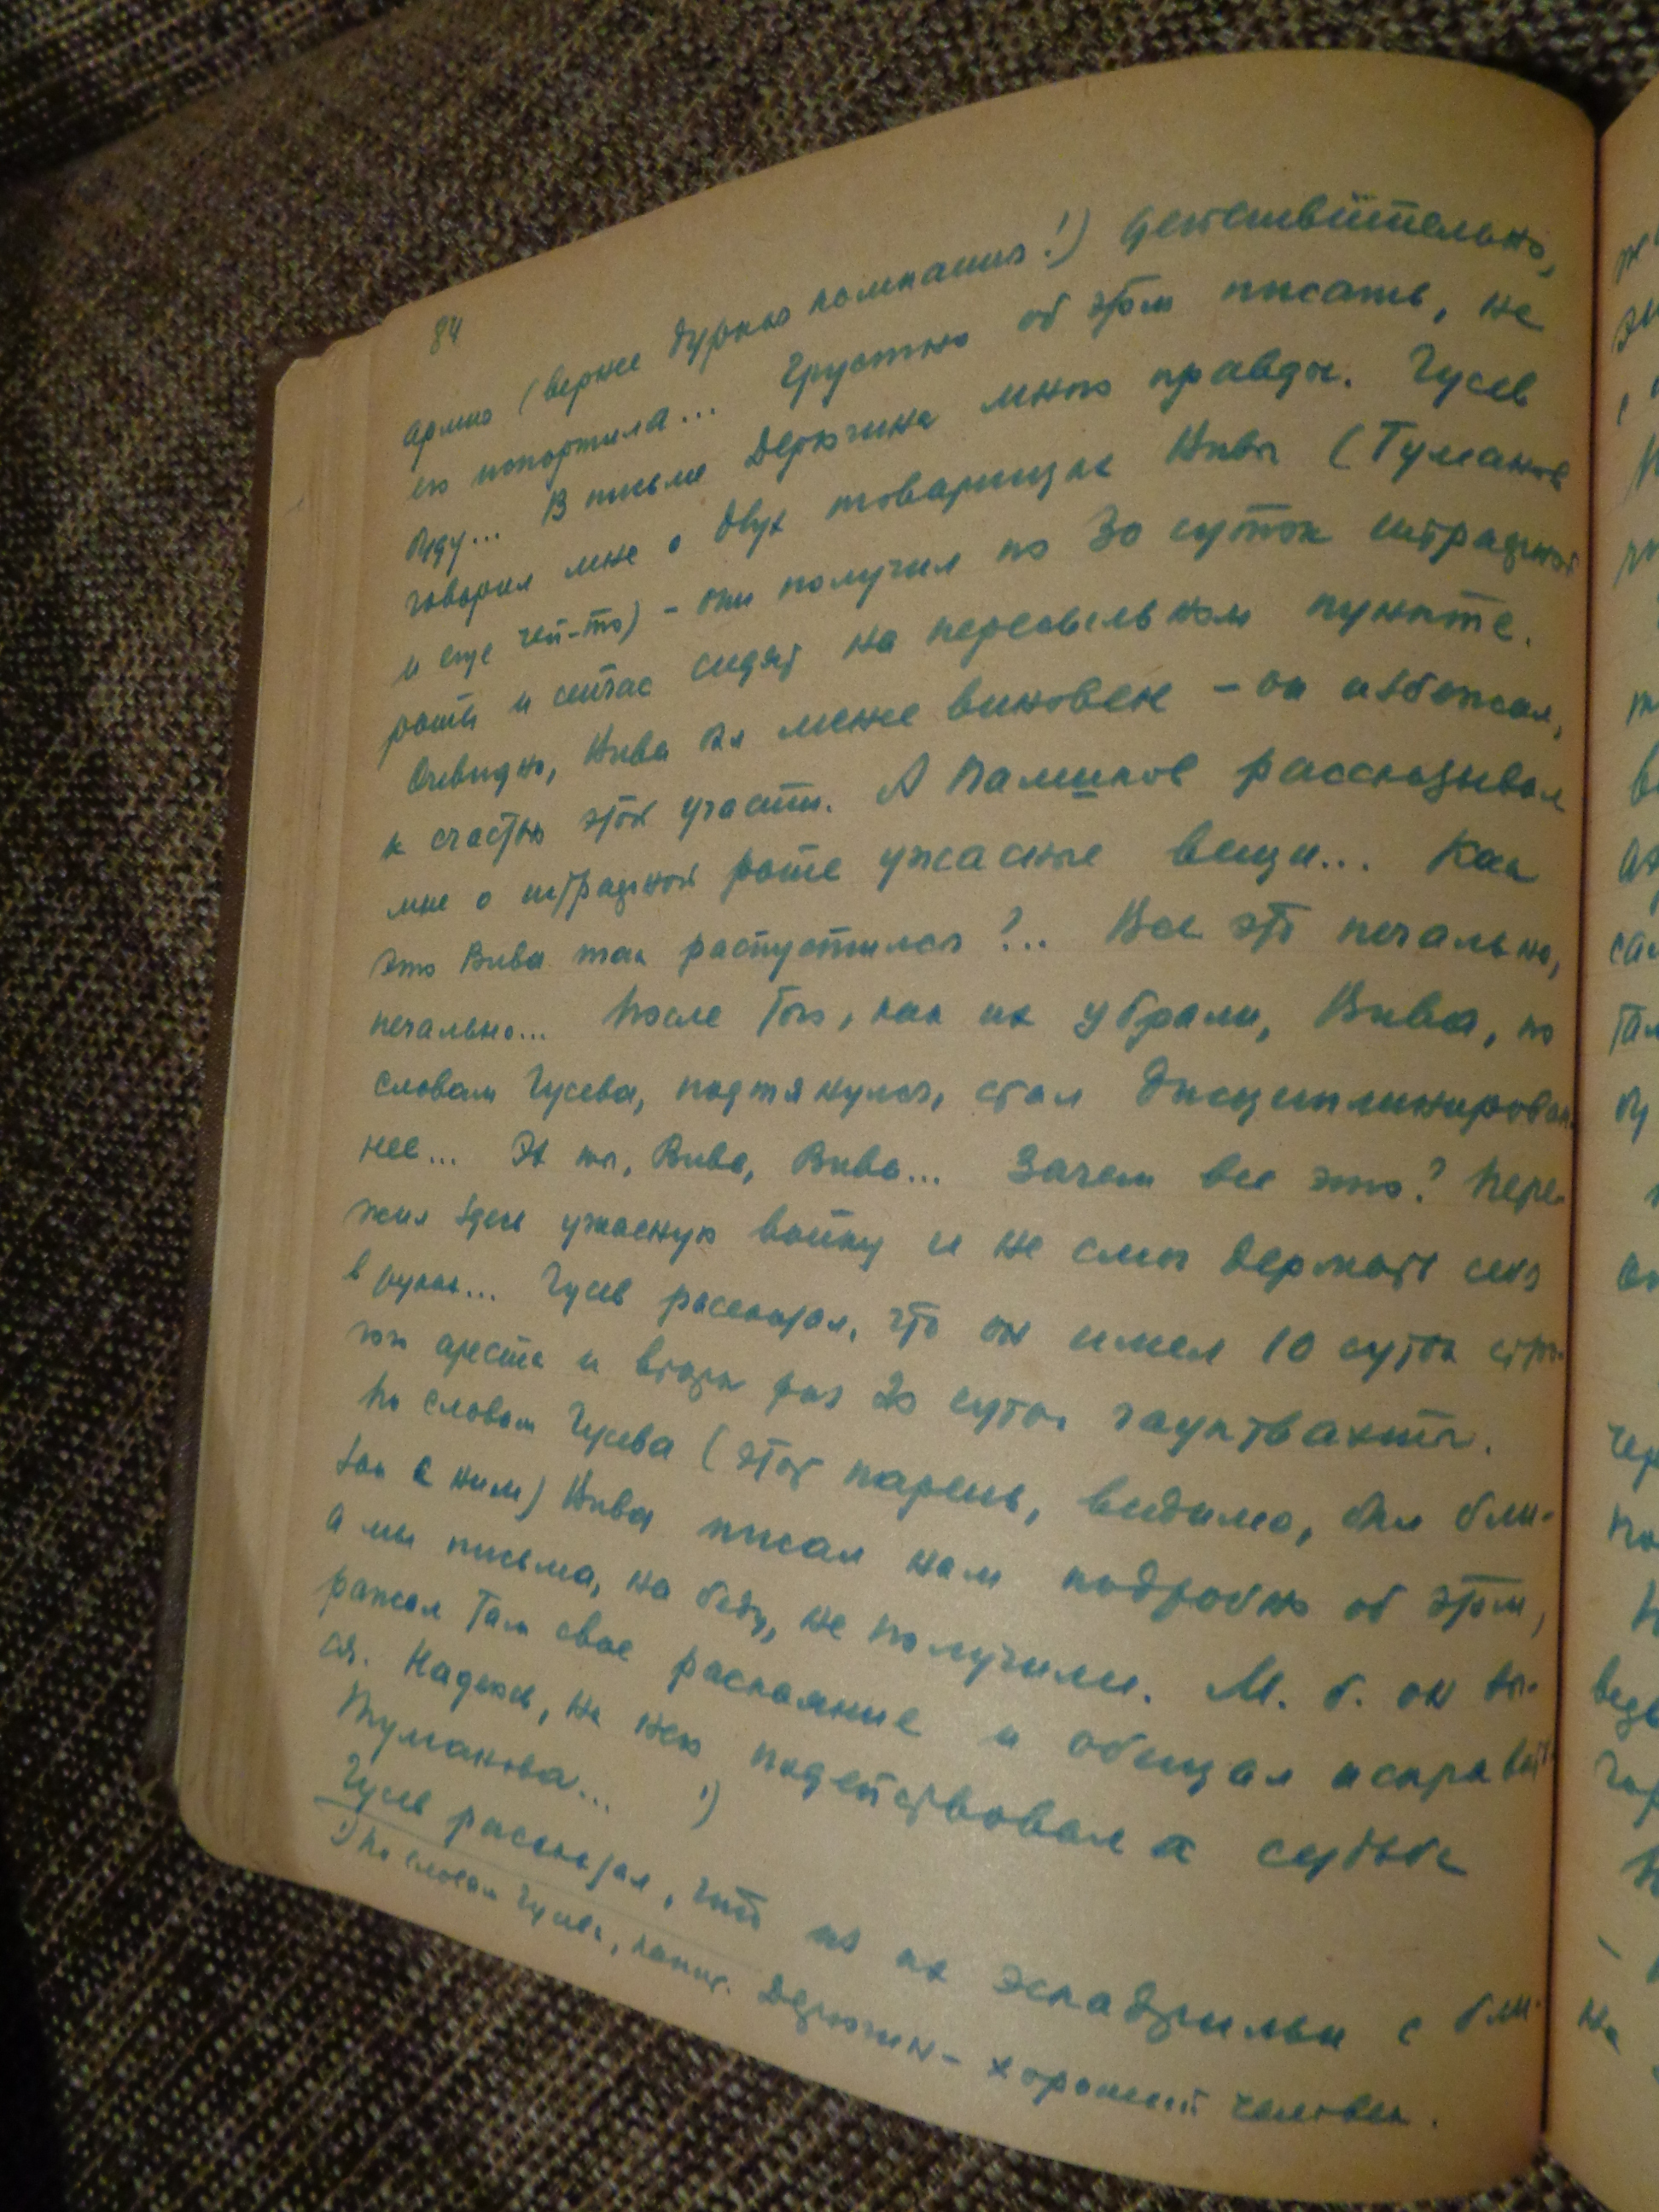 84
армия (вернее дурная компания!) действительно,
его испортила... Грустно об этом писать, не
буду... В письме Дерюгина много правды. Гусев
говорил мне о двух товарищах Вивы (Туманов
и еще чей-то) – они получил по 30 суток штрафной
роты и сейчас сидят на пересыльном пункте.
Очевидно, Вива был менее виновен – он избежал,
к счастью этой участи. А Паликов рассказывал
мне о штрафной роте ужасные вещи... Как
это Вива так распустился?.. Все это печально,
печально... После того, как их убрали, Вива, по
словам Гусева, подтянулся, стал дисциплинирован-
нее... Эх ты, Вива, Вива... Зачем все это? Пере-
жил здесь ужасную войну и не смог держать себя
в руках... Гусев рассказал, что он имел 10 суток стро-
гого ареста и второй раз 20 суток гауптвахты.
По словам Гусева (этот парень, видимо, был бли-
зок с ним) Вива писал нам подробно об этом,
а мы письма, на беду, не получили. М. б. он вы-
ражал там свое раскаяние и обещал исправить
ся. Надеюсь, на него подействовала судьба
Туманова... ¹)
Гусев рассказал, что из их эскадрильи с бли-
¹) По словам Гусева, капит. Дерюгин – хороший человек.